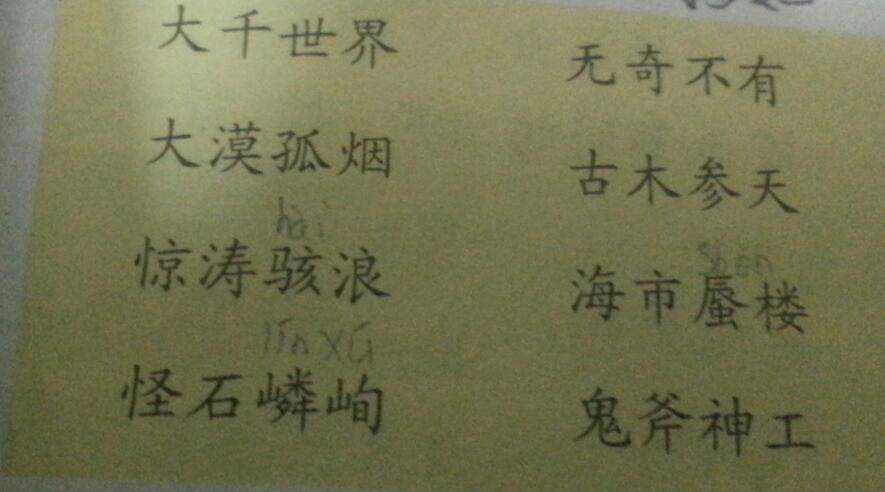 大千世界 无奇不有
大漠孤烟 古木参天
hài shèn
惊涛骇浪 海市蜃楼
怪石嶙峋 鬼斧神工